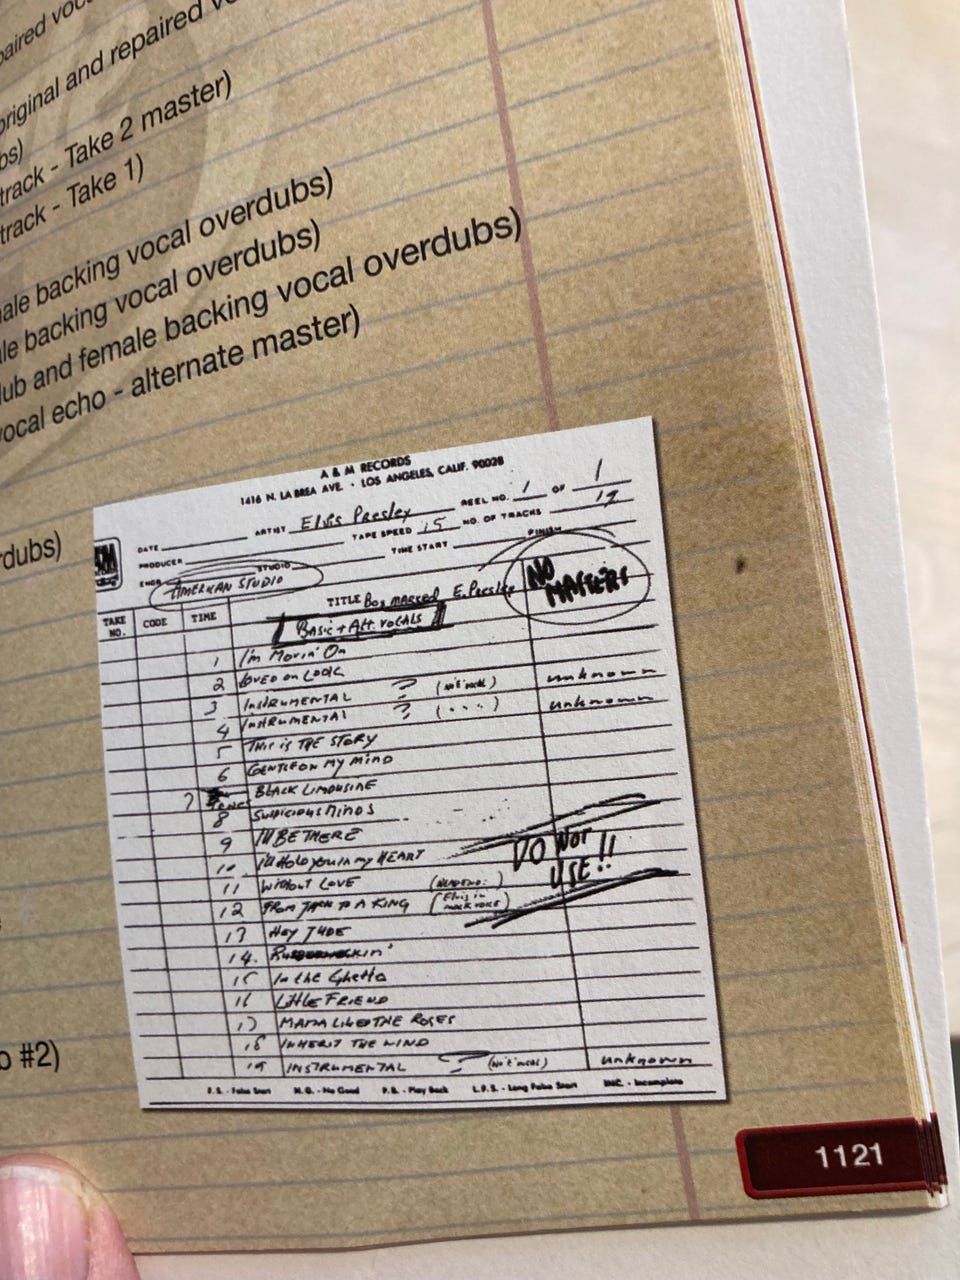 paired voc
original and repaired v
bs)
track - Take 2 master)
track - Take 1)
nale backing vocal overdubs)
le backing vocal overdubs)
lub and female backing vocal overdubs)
vocal echo - alternate master)
rdubs)
o #2)
A & M RECORDS
1416 N. LA BREA AVE. · LOS ANGELES, CALIF. 90028
DATE ARTIST Elvis Presley REEL NO. 1 OF 1
PRODUCER TAPE SPEED 15 NO. OF TRACKS 19
ENGR. STUDIO TIME START FINISH
AMERICAN STUDIO
TITLE Box marked E. Presley NO MASTERS
TAKE NO. CODE TIME
Basic + Alt. VOCALS
1 I'm Movin' On
2 LOVED ON LOOK
3 INSTRUMENTAL ? unknown
4 INSTRUMENTAL ? (" " ") unknown
5 THIS IS THE STORY
6 GENTLE ON MY MIND
7 BLACK LIMOUSINE
8 SUSPICIOUS MINDS
9 I'LL BE THERE
10 I'll HOLD YOU IN MY HEART
DO NOT USE!!
11 WITHOUT LOVE
12 FROM JACK TO A KING (Elvis in mock voice)
13 HEY JUDE
14. Rubberneckin'
15 In the Ghetto
16 LITTLE FRIEND
17 MAMA LIKED THE ROSES
18 INHERIT THE WIND
19 INSTRUMENTAL ? unknown
F.S. - False Start N.G. - No Good P.B. - Play Back L.F.S. - Long False Start INC. - Incomplete
1121